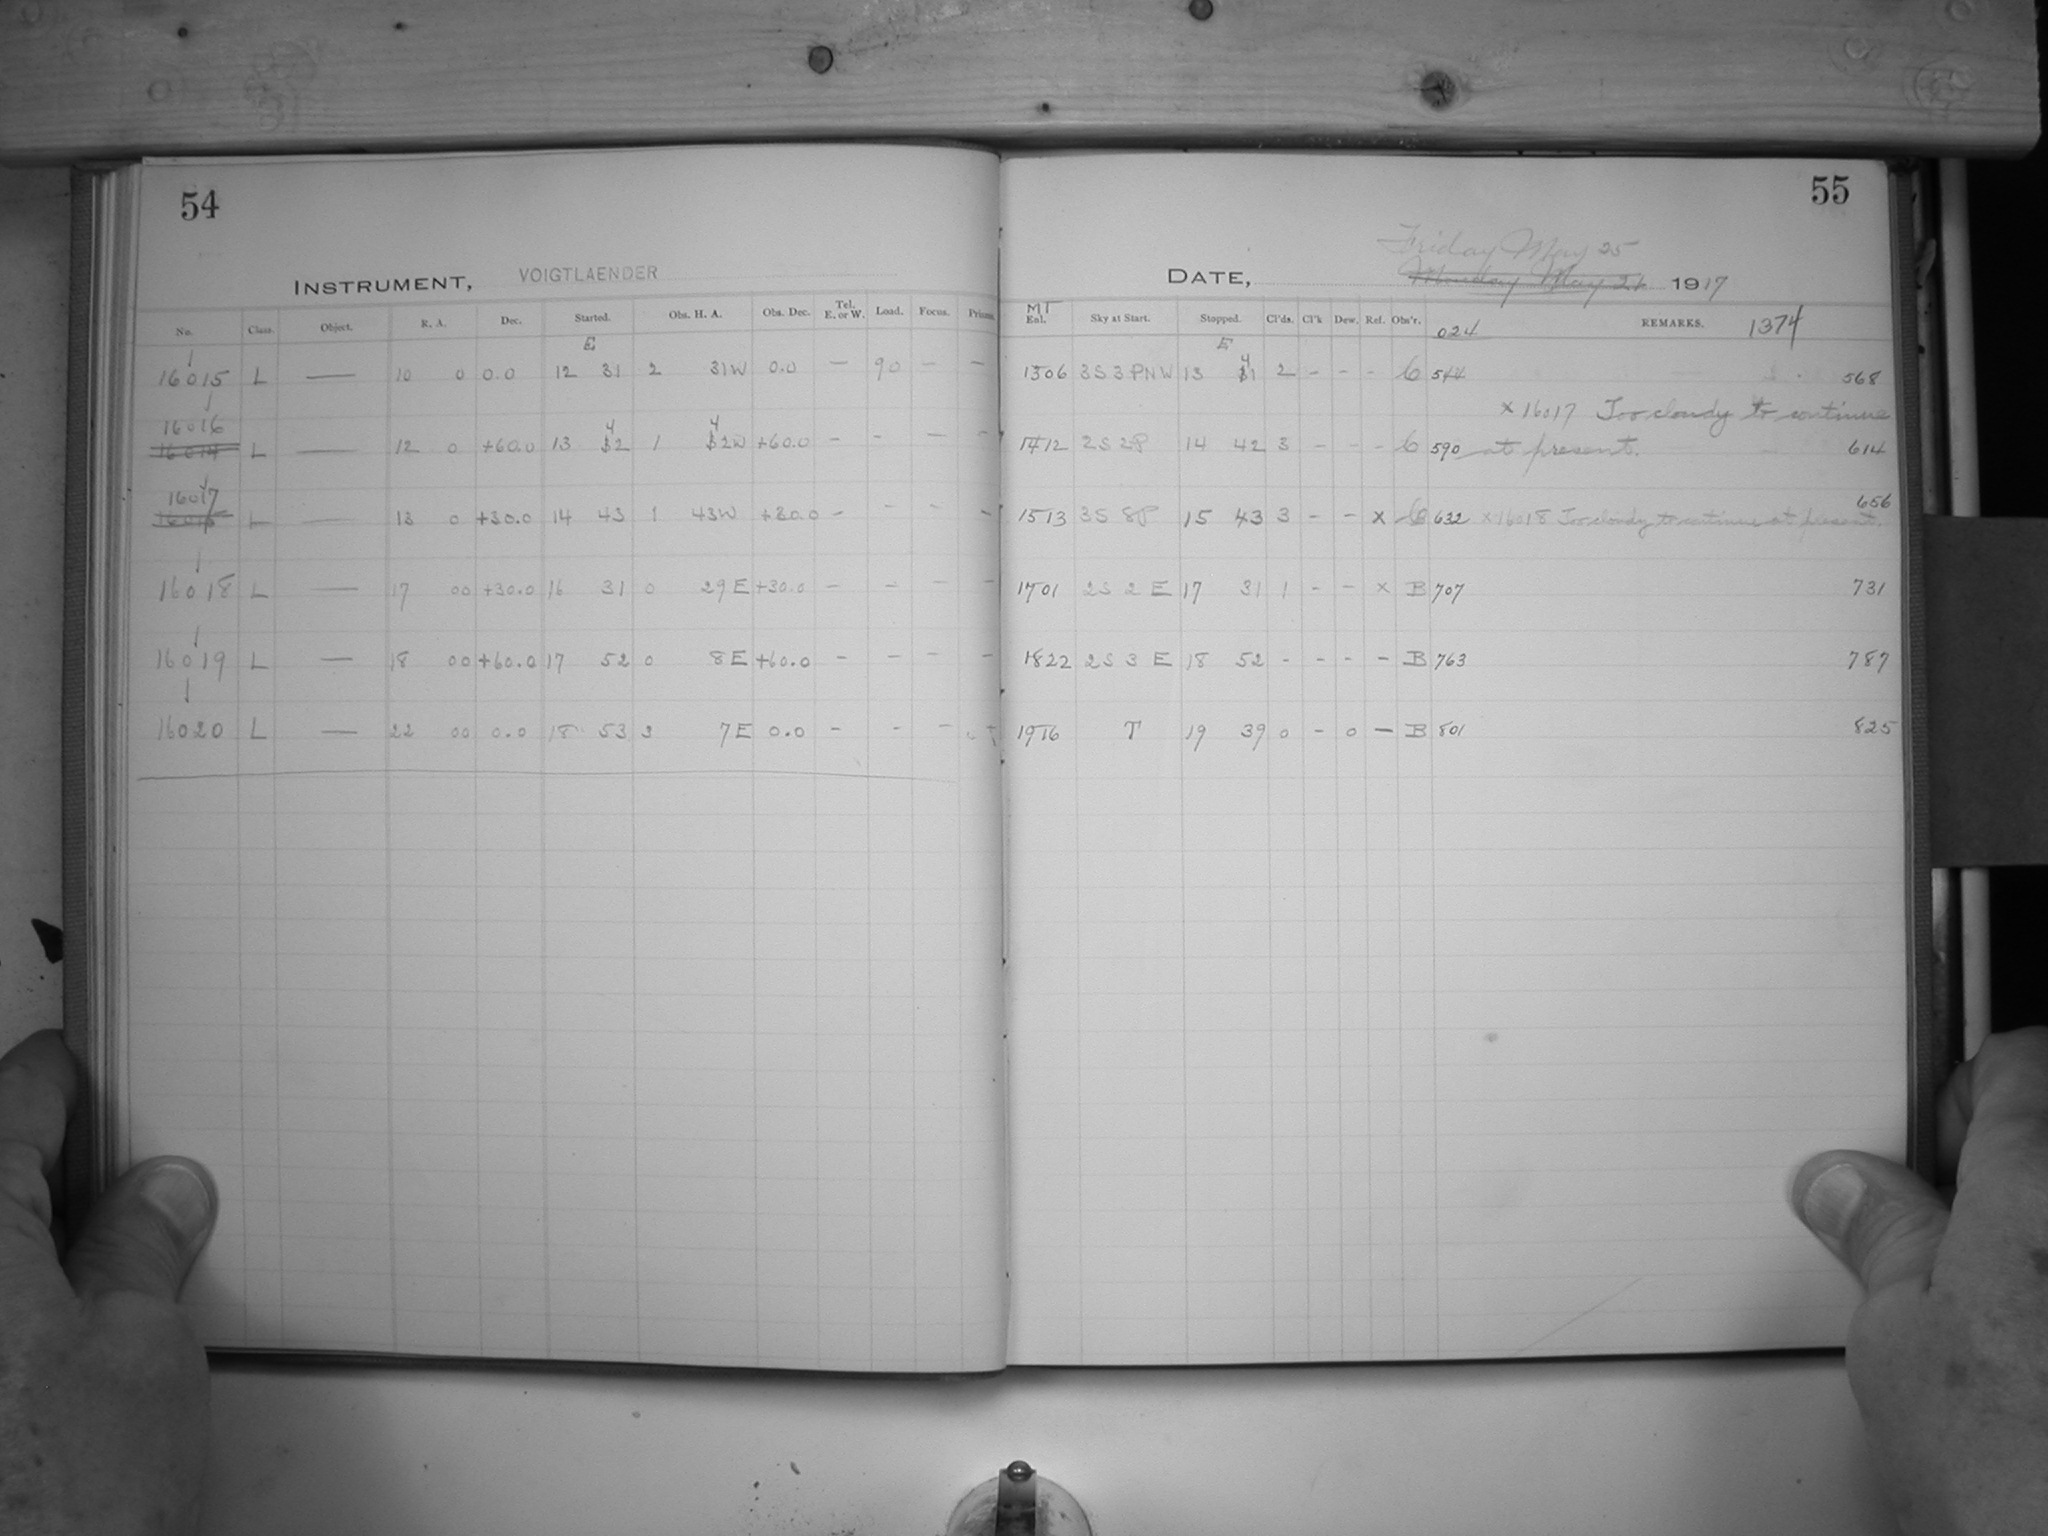 54
INSTRUMENT, VOIGTLAENDER
No. Class. Object. R. A. Dec. Started. Obs. H. A. Obs. Dec. Tel. E. or W. Load. Focus.
E
16015 L — 10 0 0.0 12 31 2 31W 0.0 — 90 — —
16016
L — 12 0 +60.0 13 42 1 42W +60.0 - - - -
16017
L — 13 0 +30.0 14 43 1 43W +30.0 - - - -
16018 L — 17 00 +30.0 16 31 0 29 E +30.0 - - - -
16019 L — 18 00 +60.0 17 52 0 8 E +60.0 - - - -
16020 L — 22 00 0.0 18 53 3 7 E 0.0 - - -
55
Friday May 25
DATE, Monday May 21 1917
MT
Enl. Sky at Start. Stopped. Cl'ds. Cl'k Dew. Ref. Obs'r. 024 REMARKS. 1374
E
1306 3S3PNW 13 41 2 - - - C 544 568
x 16017 Too cloudy to continue
1412 2S2P 14 42 3 - - - C 590 at present. 614
656
1513 3S 8P 15 43 3 - - x C 632 x 16018 Too cloudy to continue at present.
1701 2S 2 E 17 31 1 - - x B 707 731
1822 2S 3 E 18 52 - - - - B 763 787
1916 T 19 39 0 - 0 — B 801 825